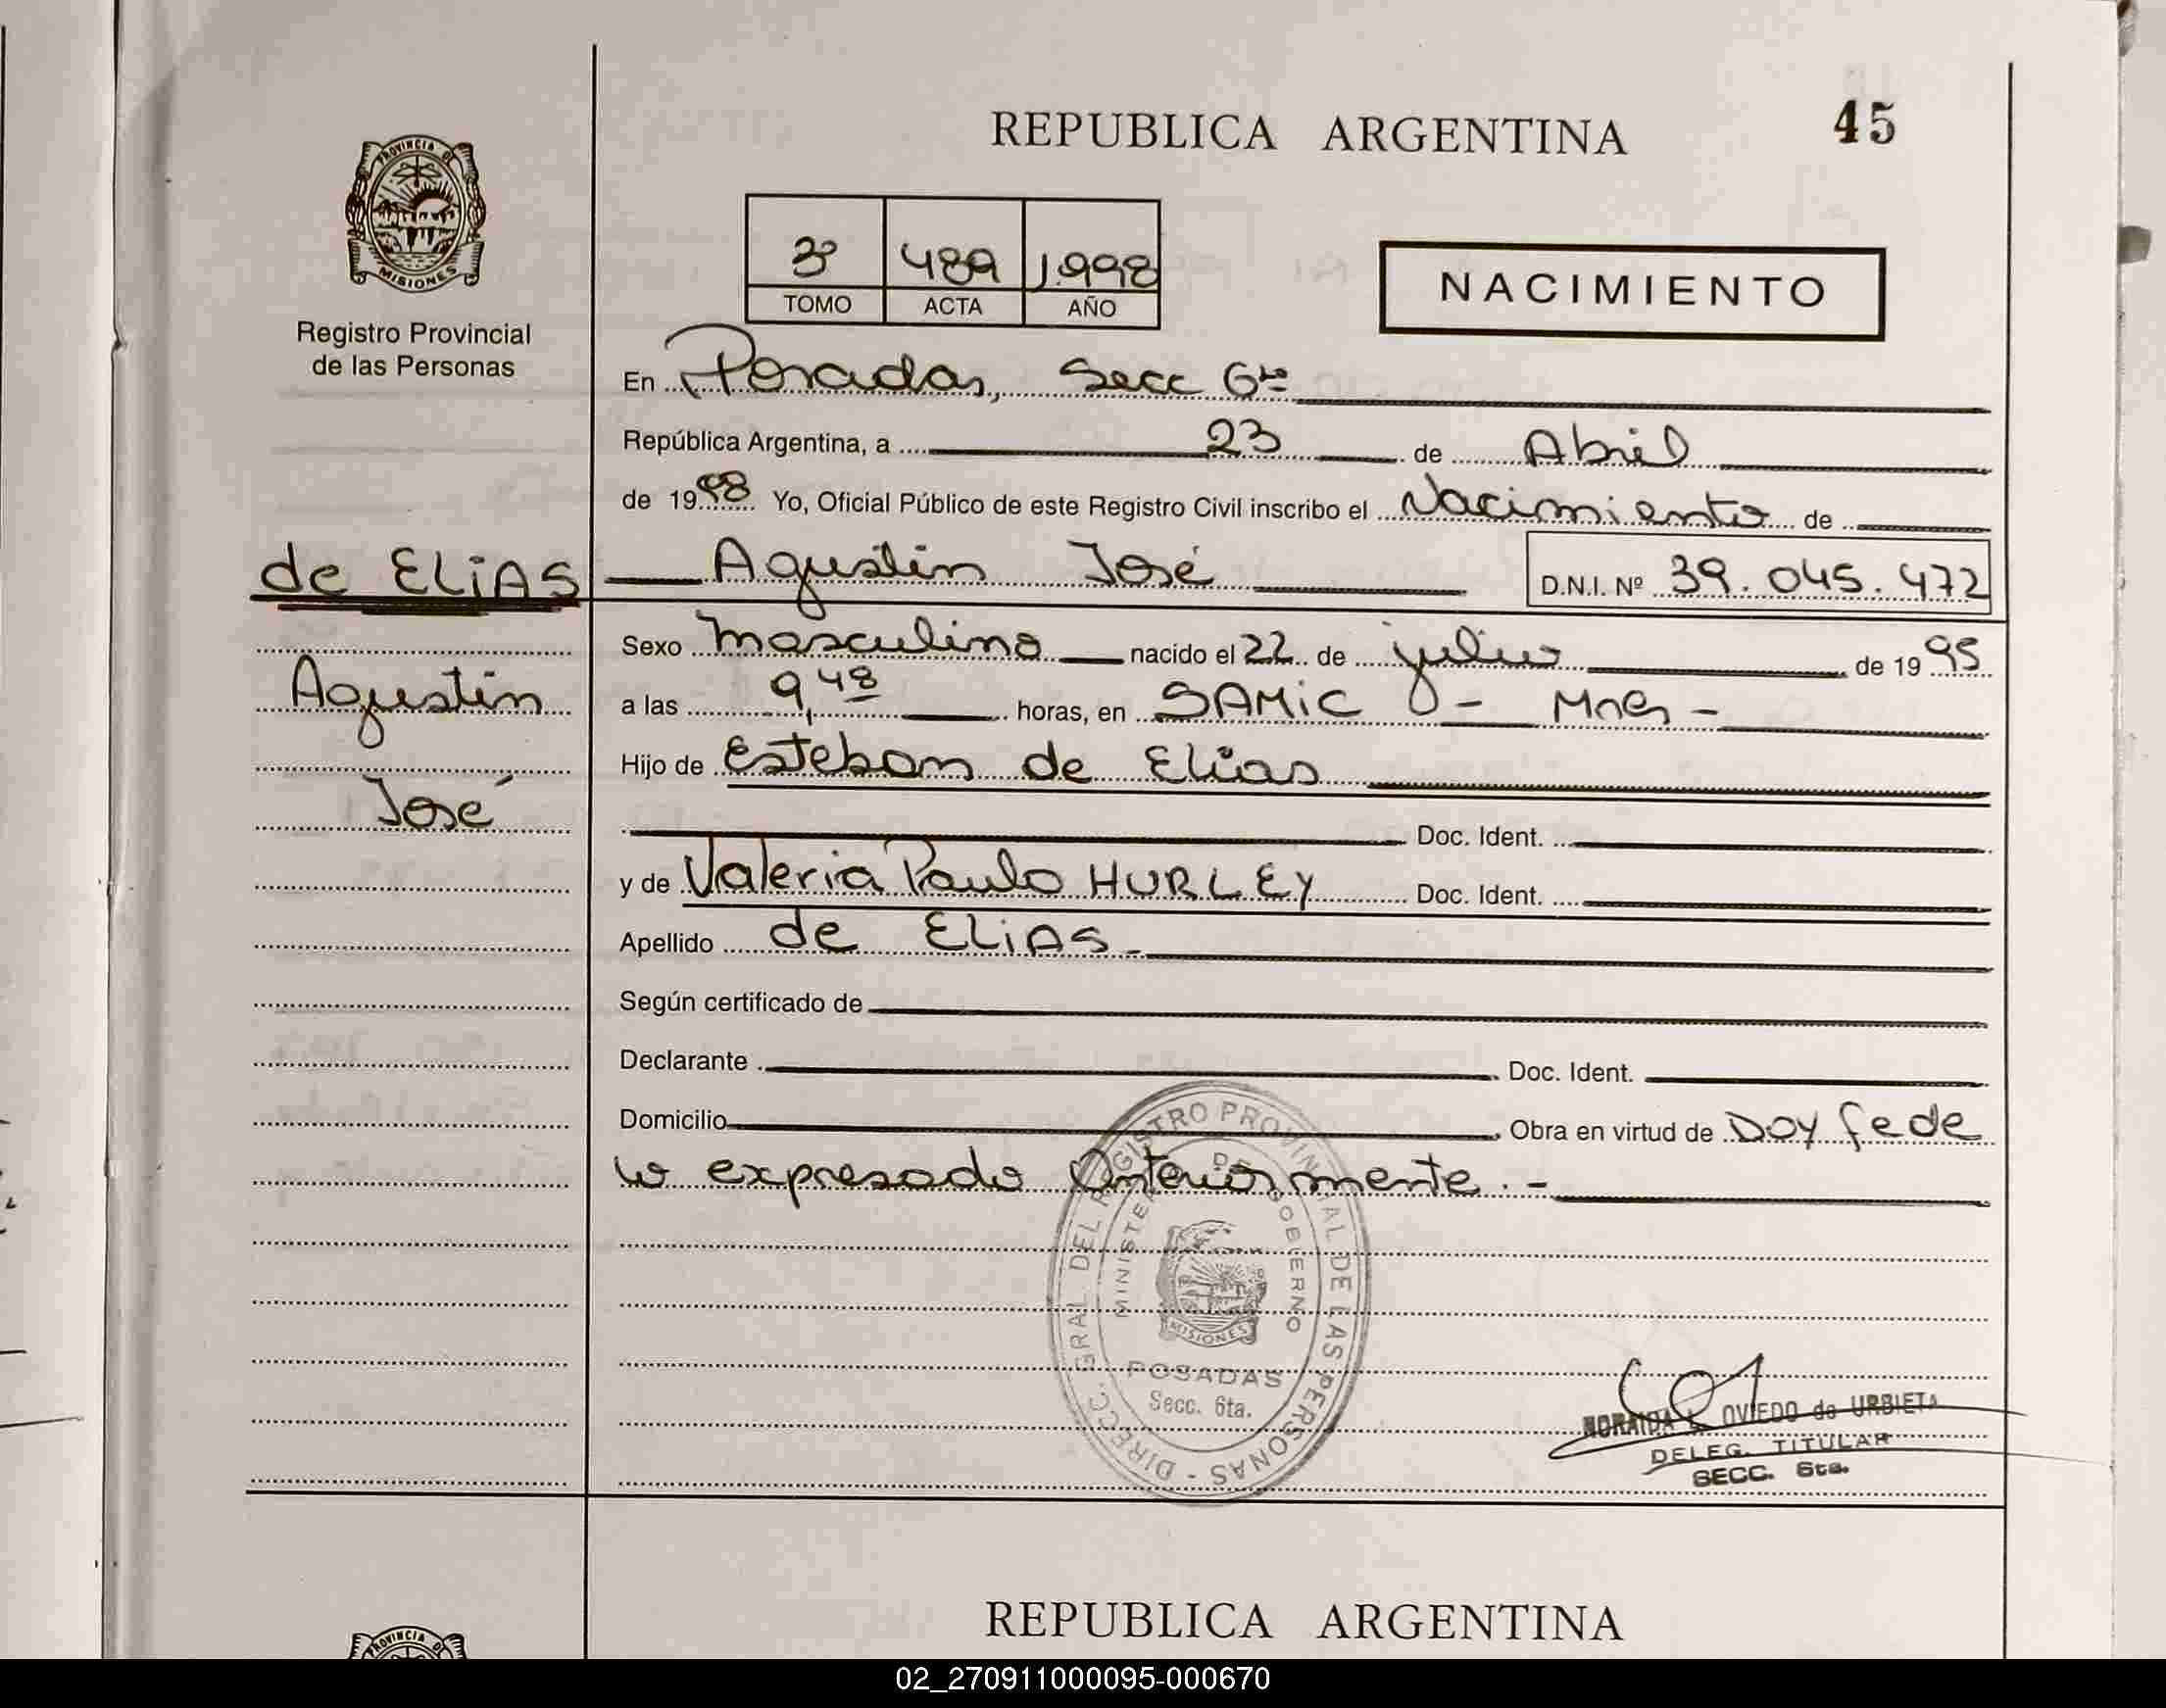 REPUBLICA ARGENTINA 45
PROVINCIA DE
MISIONES
Registro Provincial
de las Personas
3º 489 1.998
TOMO ACTA AÑO
NACIMIENTO
En Posadas, Secc 6ta
República Argentina, a 23 de Abril
de 1998 Yo, Oficial Público de este Registro Civil inscribo el Nacimiento de
de ELiAS Agustin José D.N.I. Nº 39.045.472
Sexo masculino nacido el 22 de julio de 1995
Agustin
a las 9,48 horas, en SAMiC - Mnes -
Hijo de Esteban de Elias
José
Doc. Ident.
y de Valeria Paula HURLEY Doc. Ident.
Apellido de ELiAS -
Según certificado de
Declarante Doc. Ident.
Domicilio Obra en virtud de Doy fe de
lo expresado Anteriormente . -
DIRECC. GRAL. DEL REGISTRO PROVINCIAL DE LAS PERSONAS -
MINISTERIO DE GOBIERNO
MISIONES
POSADAS
Secc. 6ta.
NORAIDA L. OVIEDO de URBIETA
DELEG. TITULAR
SECC. 6ta.
REPUBLICA ARGENTINA
PROVINCIA DE
02_270911000095-000670